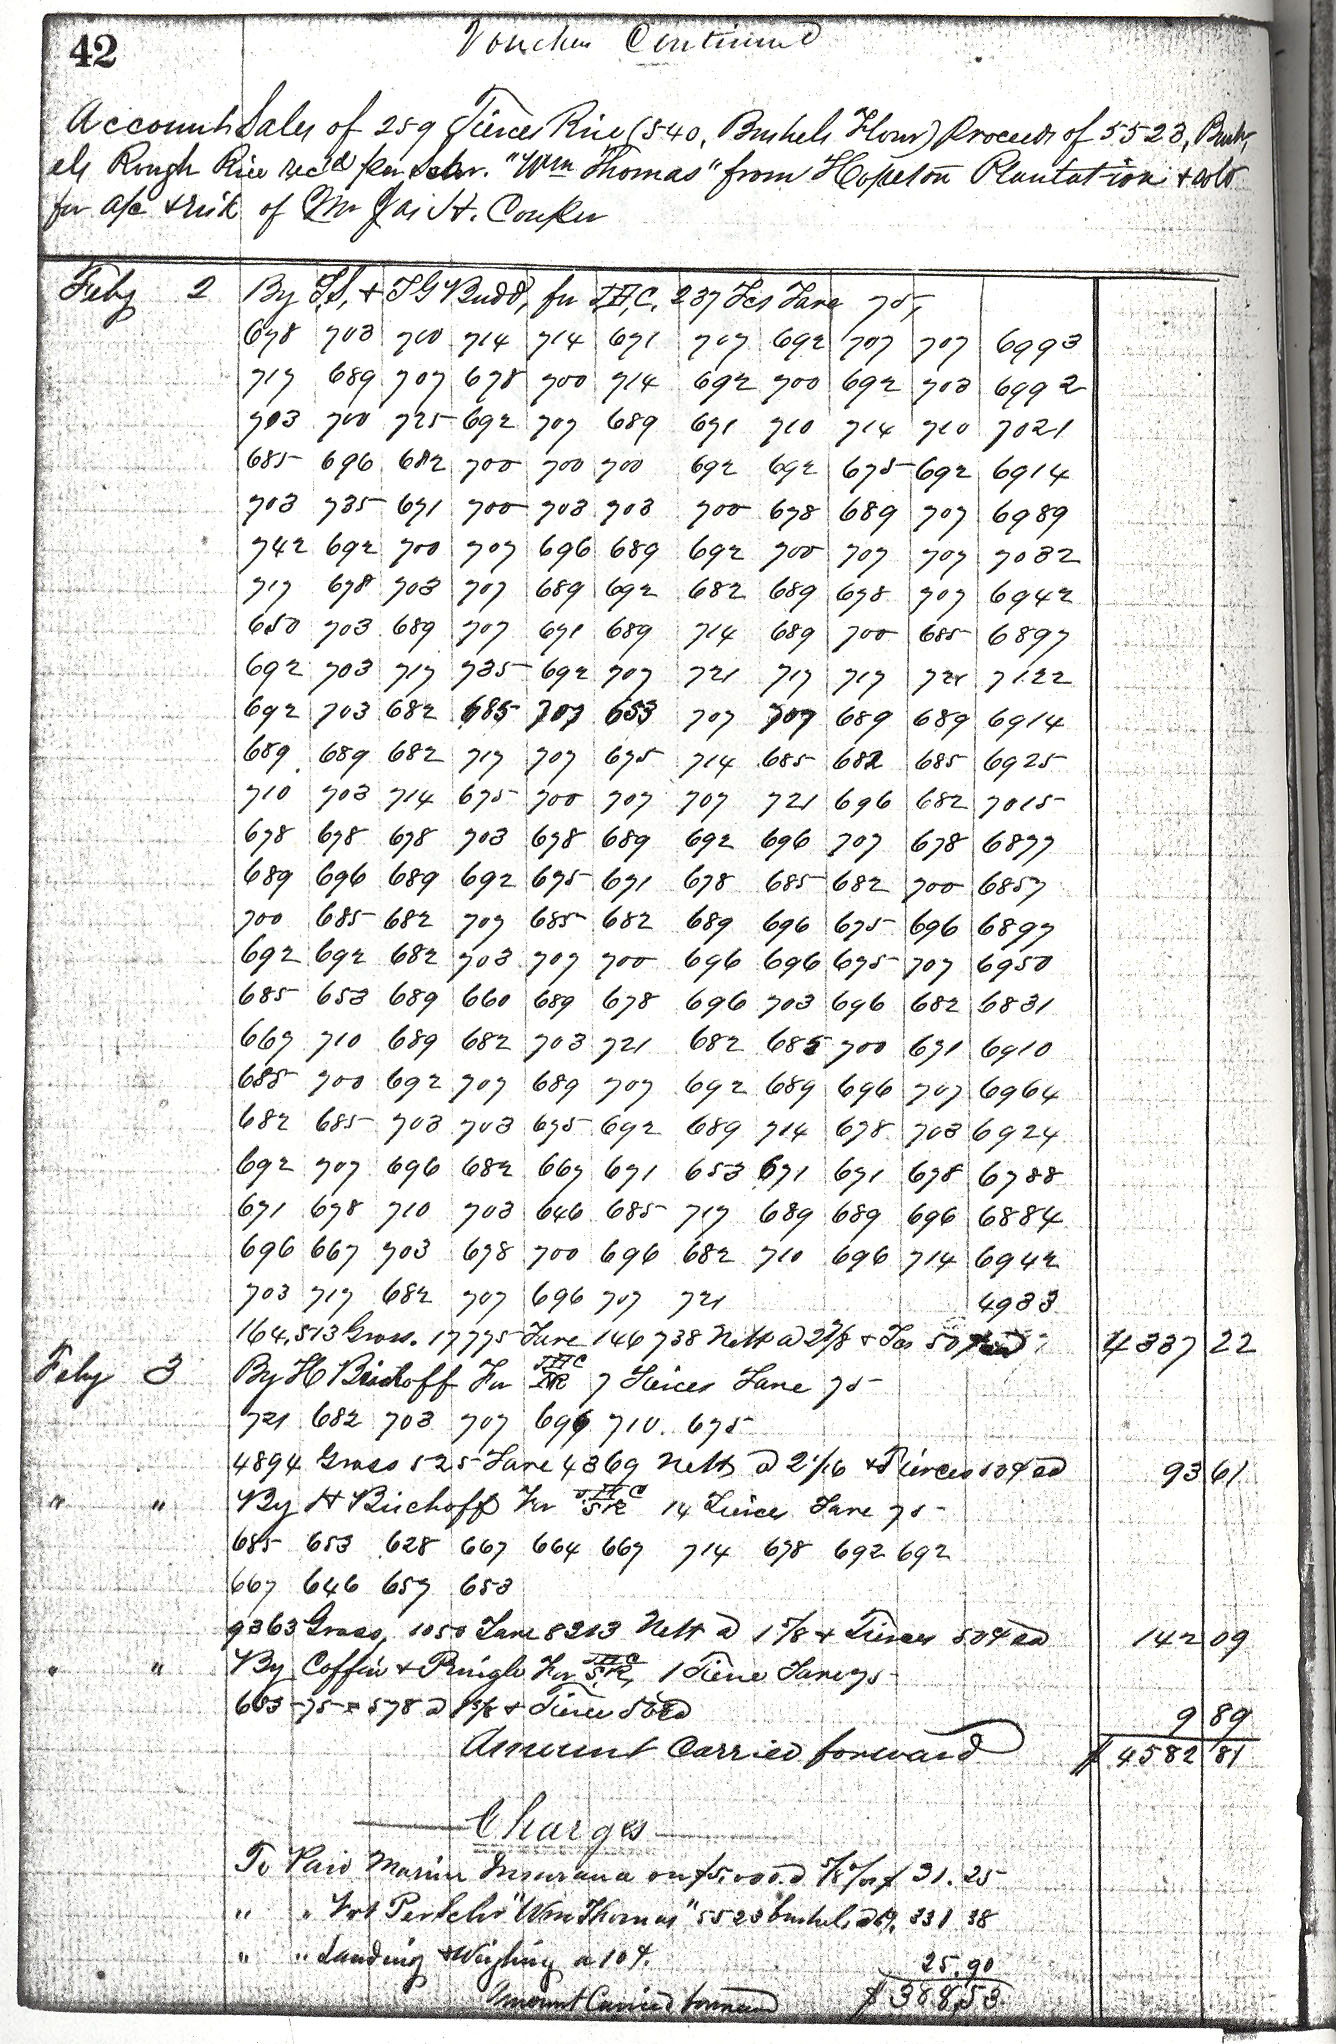 42
Voucher Continued
Account Sales of 259 Tierces Rice (540, Bushels Flour) Proceeds of 5523, Bush,
els Rough Rice rec'd per Schr. "Wm Thomas" from Hopeton Plantation & sold
for a/c & risk of Mr Jas H. Couper
Feby 2 By T.S, & T G Budd, for JHC, 237 Tcs Tare 75,
678 703 700 714 714 671 707 692 707 707 6993
717 689 707 678 700 714 692 700 692 703 6992
703 700 725 692 707 689 671 710 714 710 7021
685 696 682 700 700 700 692 692 675 692 6914
703 735 671 700 703 703 700 678 689 707 6989
742 692 700 707 696 689 692 700 707 707 7032
717 678 703 707 689 692 682 689 678 707 6942
650 703 689 707 671 689 714 689 700 685 6897
692 703 717 735 692 707 721 717 717 721 7122
692 703 682 685 707 653 707 707 689 689 6914
689 689 682 717 707 675 714 685 682 685 6925
710 703 714 675 700 707 707 721 696 682 7015
678 678 678 703 678 689 692 696 707 678 6877
689 696 689 692 675 671 678 685 682 700 6857
700 685 682 707 685 682 689 696 675 696 6897
692 692 682 703 707 700 696 696 675 707 6950
685 653 689 660 689 678 696 703 696 682 6831
667 710 689 682 703 721 682 685 700 671 6910
685 700 692 707 689 707 692 689 696 707 6964
682 685 703 703 675 692 689 714 678 703 6924
692 707 696 682 667 671 653 671 671 678 6788
671 678 710 703 646 685 717 689 689 696 6884
696 667 703 678 700 696 682 710 696 714 6942
703 717 682 707 696 707 721 4933
164,513 Gross. 17775 Tare 146738 Nett @ 2 7/8 & Tcs 50¢ 4337 22
Feby 3 By H Bischoff For JHC 7 Tierces Tare 75
721 682 703 707 696 710. 675
4894 Gross 525 Tare 4369 Nett @ 2 1/16 & Tierces 50¢ ea 93 61
" " By H Bischoff For JHC SR 14 Tierces Tare 75
685 653 628 667 664 667 714 678 692 692
667 646 657 653
9363 Gross, 1050 Tare 8313 Nett @ 1 5/8 & Tierces 50¢ ea 142 09
" " By Coffin & Pringle For JHC SR, 1 Tierce Tare 75
653 - 75 = 578 @ 1 5/8 & Tierce 50 ea 9 89
Amount Carried forward $ 4582 81
Charges
To Paid Marine Insurance on $5,000. @ 5/8 % $ 31.25
" " Frt Per Schr "Wm Thomas" 5523 bushels @ 6¢. 331 38
" " Landing & Weighing a 10¢. 25.90
Amount Carried forward $ 388.53